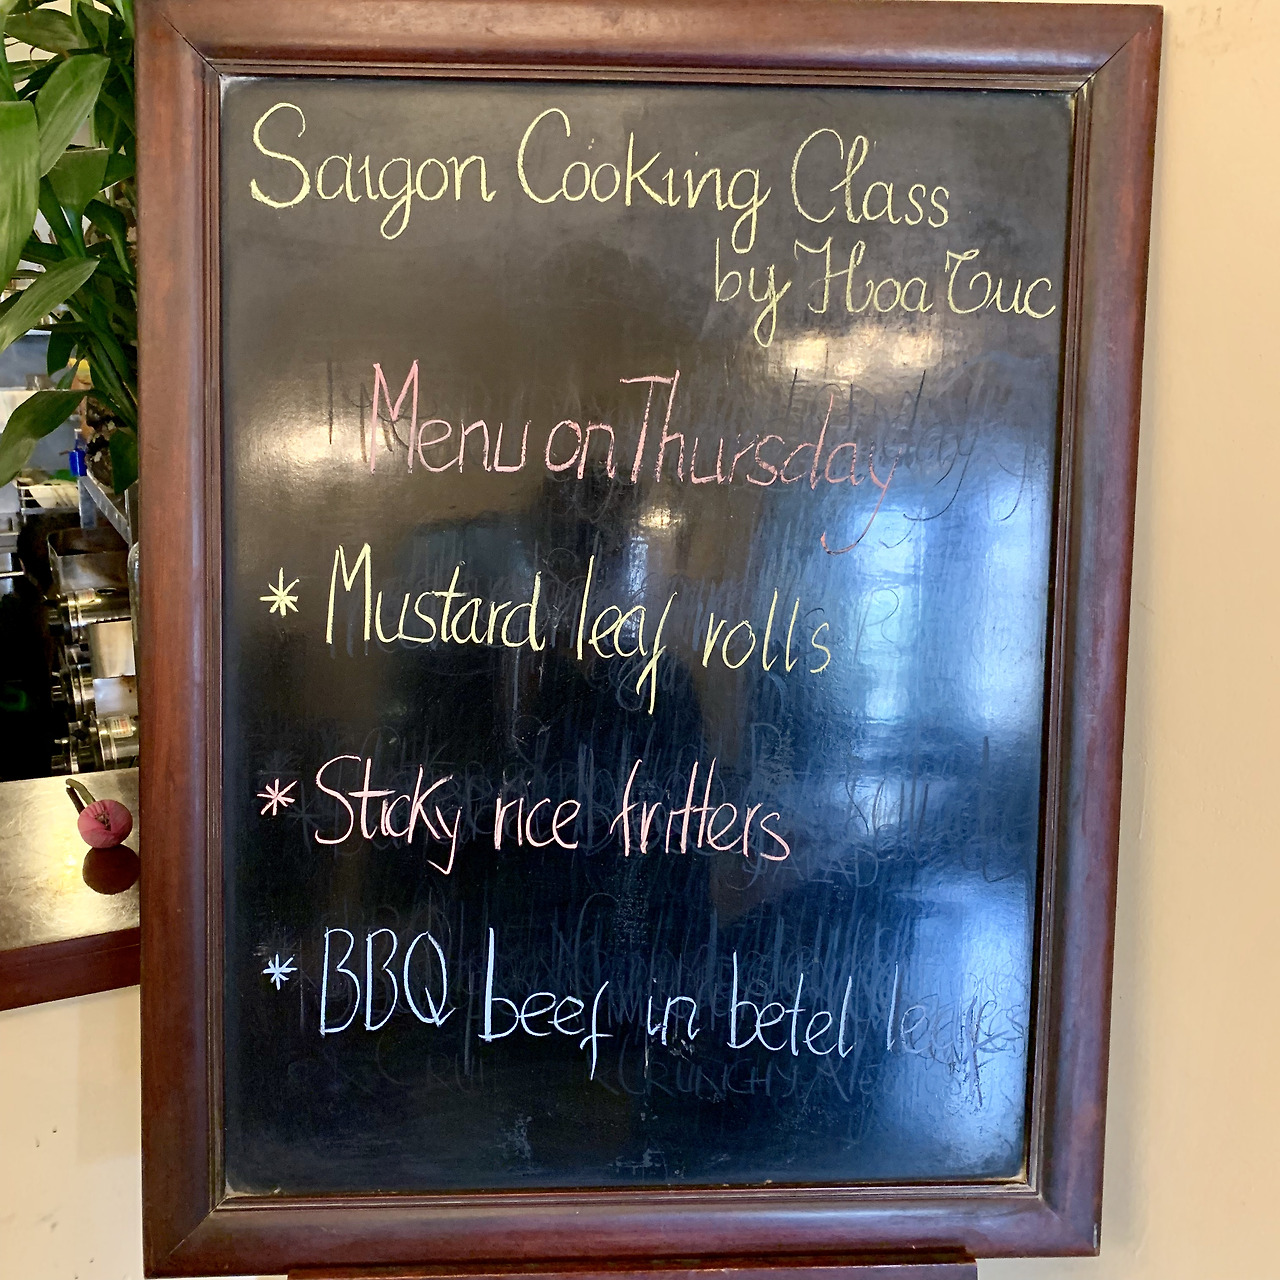 Saigon Cooking Class
by Hoa Tuc
Menu on Thursday
* Mustard leaf rolls
* Sticky rice fritters
* BBQ beef in betel leafes